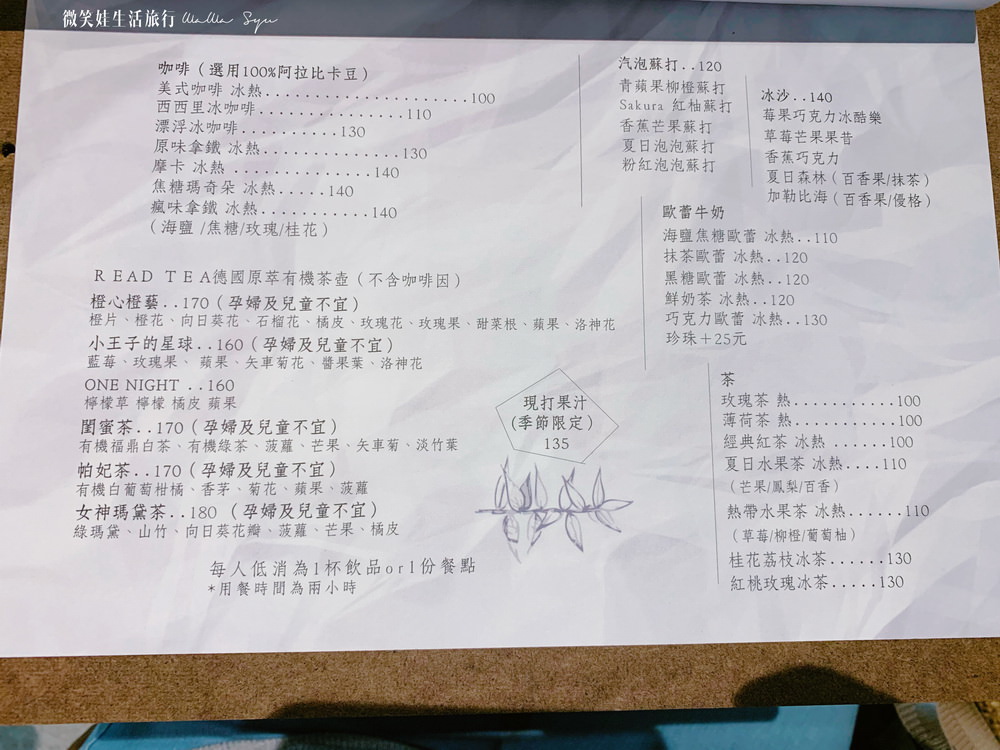 微笑娃生活旅行 WaWa Syu
咖啡（選用100%阿拉比卡豆）
美式咖啡 冰熱.....................100
西西里冰咖啡...............110
漂浮冰咖啡..........130
原味拿鐵 冰熱..............130
摩卡 冰熱 ..............140
焦糖瑪奇朵 冰熱.....140
瘋味拿鐵 冰熱...........140
（海鹽 /焦糖/玫瑰/桂花）
READ TEA德國原萃有機茶壺（不含咖啡因）
橙心橙藝..170（孕婦及兒童不宜）
橙片、橙花、向日葵花、石榴花、橘皮、玫瑰花、玫瑰果、甜菜根、蘋果、洛神花
小王子的星球..160（孕婦及兒童不宜）
藍莓、玫瑰果、 蘋果、矢車菊花、醬果葉、洛神花
ONE NIGHT ..160
檸檬草 檸檬 橘皮 蘋果
閨蜜茶..170（孕婦及兒童不宜）
有機福鼎白茶、有機綠茶、菠蘿、芒果、矢車菊、淡竹葉
帕妃茶..170（孕婦及兒童不宜）
有機白葡萄柑橘、香茅、菊花、蘋果、菠蘿
女神瑪黛茶..180 （孕婦及兒童不宜）
綠瑪黛、山竹、向日葵花瓣、菠蘿、芒果、橘皮
每人低消為1杯飲品or1份餐點
*用餐時間為兩小時
現打果汁
(季節限定)
135
汽泡蘇打..120
青蘋果柳橙蘇打
Sakura 紅柚蘇打
香蕉芒果蘇打
夏日泡泡蘇打
粉紅泡泡蘇打
冰沙..140
莓果巧克力冰酷樂
草莓芒果果昔
香蕉巧克力
夏日森林（百香果/抹茶）
加勒比海（百香果/優格）
歐蕾牛奶
海鹽焦糖歐蕾 冰熱..110
抹茶歐蕾 冰熱..120
黑糖歐蕾 冰熱..120
鮮奶茶 冰熱..120
巧克力歐蕾 冰熱..130
珍珠＋25元
茶
玫瑰茶 熱...........100
薄荷茶 熱...........100
經典紅茶 冰熱.......100
夏日水果茶 冰熱....110
（芒果/鳳梨/百香）
熱帶水果茶 冰熱......110
（草莓/柳橙/葡萄柚）
桂花荔枝冰茶......130
紅桃玫瑰冰茶.....130